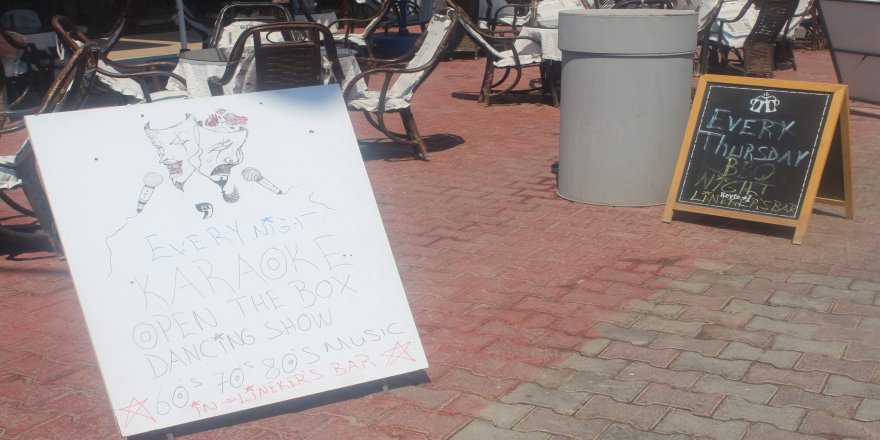 EVERY NIGHT
KARAOKE
OPEN THE BOX
DANCING SHOW
60'S 70'S 80'S MUSIC
IN → LINEKER'S BAR
EVERY
THURSDAY
BBQ
NIGHT
LINEKER'S BAR